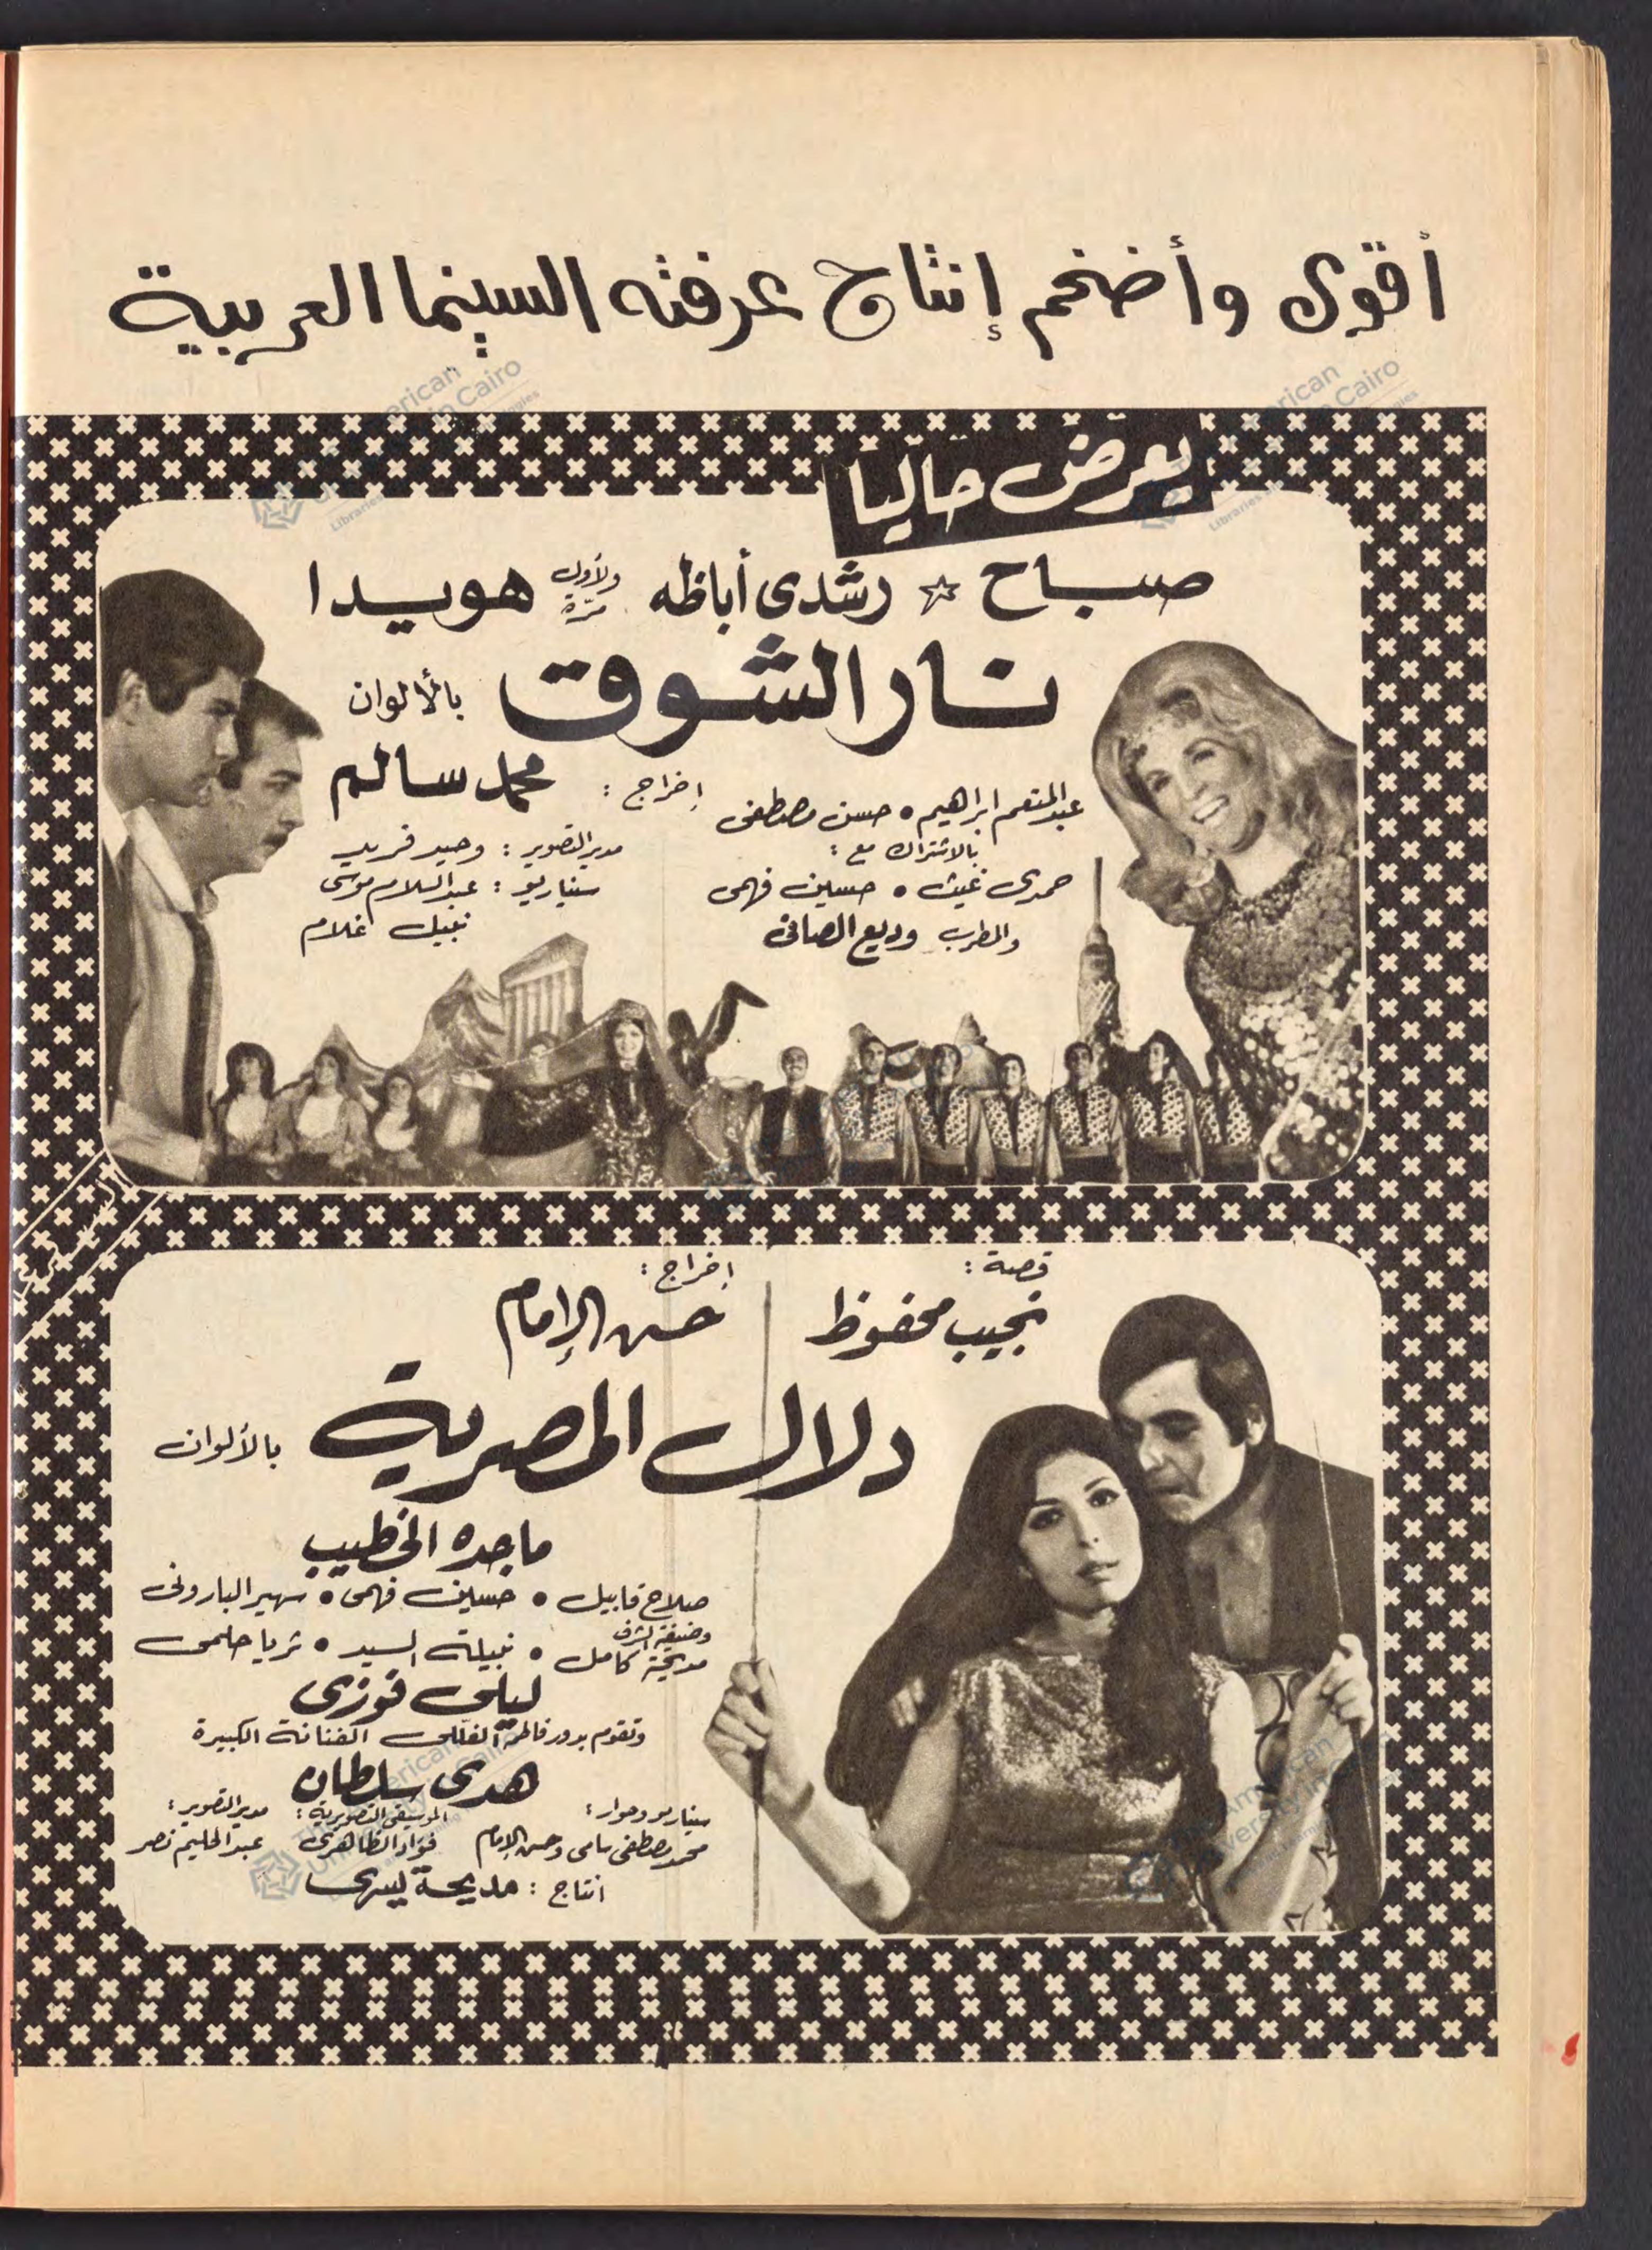 أقوى وأضخم إنتاج عرفته السينما العربية
يعرض حاليا
صباح ☆ رشدى أباظه ولأول مرة هويدا
نار الشوق بالألوان
عبد المنعم ابراهيم • حسن مصطفى
بالاشتراك مع :
حمدى غيث • حسين فهمى
والمطرب وديع الصافى
إخراج : محمد سالم
مدير التصوير : وحيد فريد
سيناريو : عبد السلام موسى
نبيل غلام
قصة :
نجيب محفوظ
إخراج :
حسن الإمام
دلال المصرية بالألوان
ماجده الخطيب
صلاح قابيل • حسين فهمى • سهير البارونى
وضيفة الشرف
مديحة كامل • نبيلة السيد • ثريا حلمى
ليلى فوزى
وتقوم بدور فاطمة الفنانة الكبيرة
هدى سلطان
سيناريو وحوار :
محمد مصطفى سامى وحسن الإمام
الموسيقى التصويرية :
فؤاد الظاهرى
مدير التصوير :
عبد الحليم نصر
انتاج : مديحة يسرى
The American
University in Cairo
Libraries